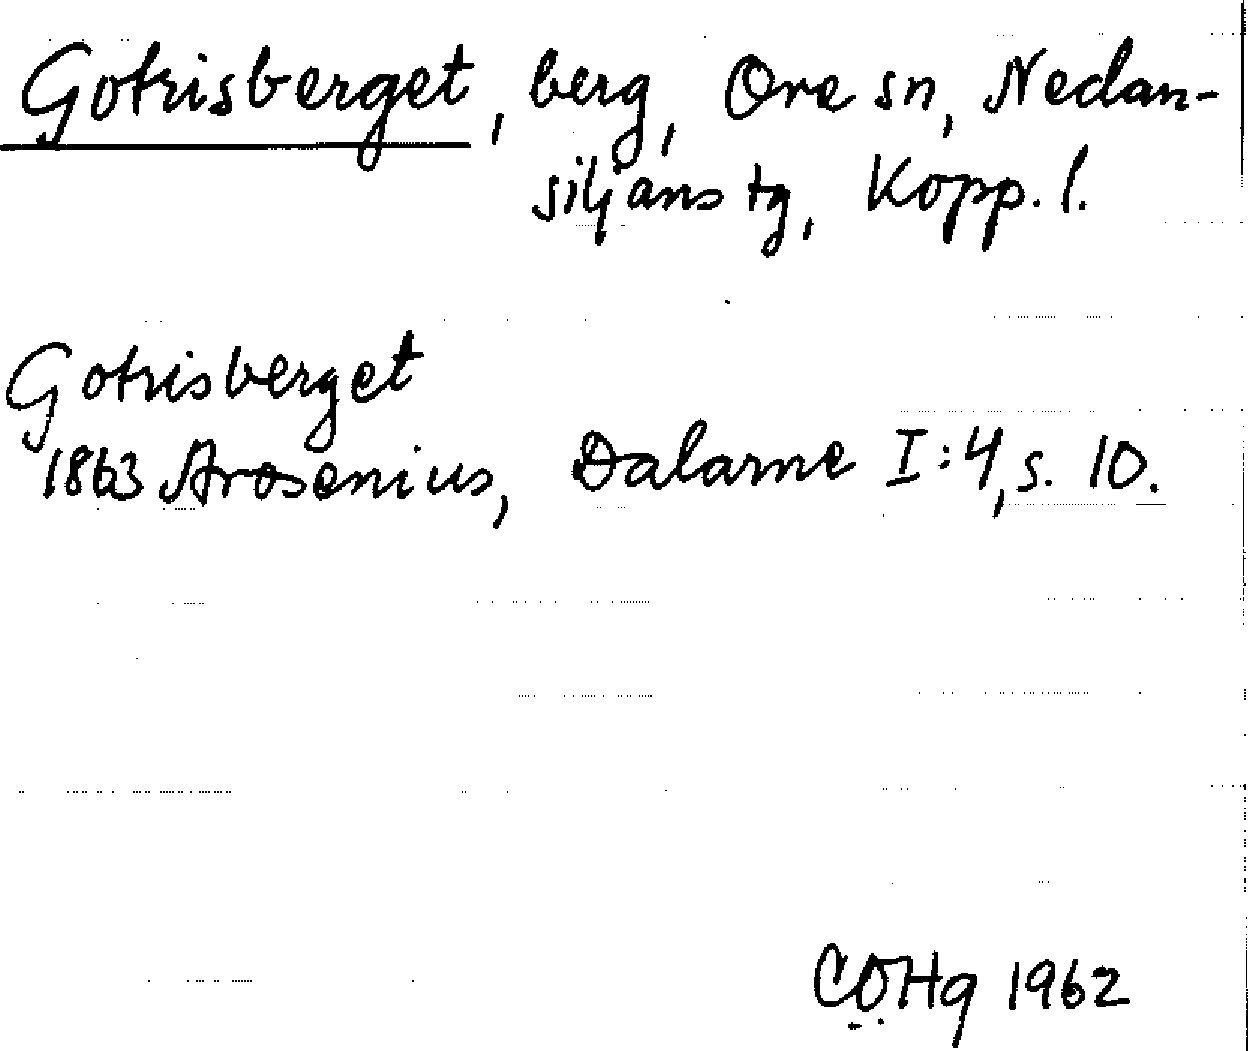 Gotrisberget, berg, Ore sn, Nedan-
siljans tg, Kopp. l.
Gotrisberget
1863 Arosenius, Dalarne I:4, s. 10.
COHg 1962